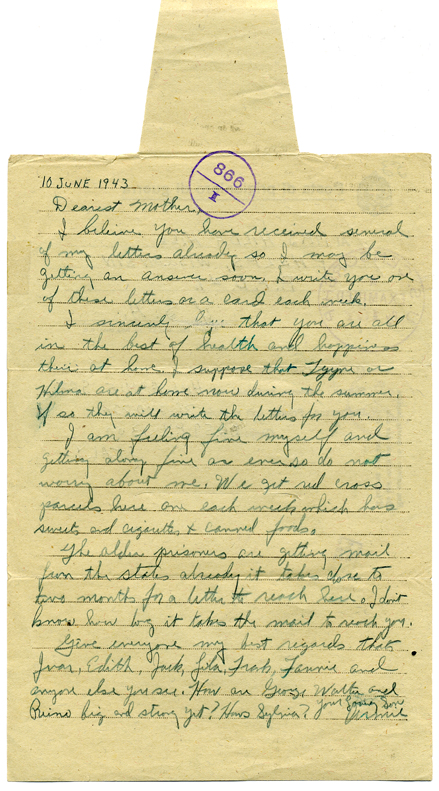 866
I
10 JUNE 1943
Dearest Mother,
I believe you have received several
of my letters already so I may be
getting an answer soon. I write you one
of these letters or a card each week.
I sincerely hope that you are all
in the best of health and happiness
there at home. I suppose that or
Hilma are at home now during the summer.
If so they will write the letters for you.
I am feeling fine myself and
getting along fine as ever so do not
worry about me. We get red cross
parcels here one each week which has
sweets and cigarettes & canned foods.
The older prisoners are getting mail
from the states already it takes close to
two month for a letter to reach here. I don't
know how long it takes the mail to reach you.
Give everyone my best regards that
Ivar, Edith, Jack, Lola, Frank, Fannie and
anyone else you see. How are George Walter and
Reino big and strong yet? Hows Sylvia?
Your Loving Son